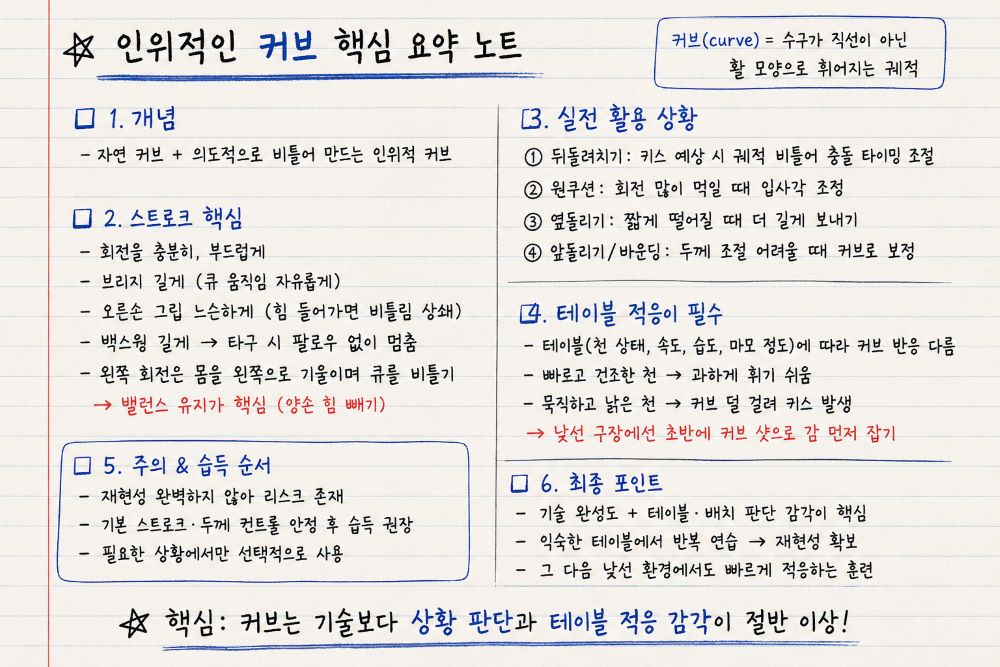 ☆ 인위적인 커브 핵심 요약 노트
커브(curve) = 수구가 직선이 아닌
활 모양으로 휘어지는 궤적
□ 1. 개념
- 자연 커브 + 의도적으로 비틀어 만드는 인위적 커브
□ 2. 스트로크 핵심
- 회전을 충분히, 부드럽게
- 브리지 길게 (큐 움직임 자유롭게)
- 오른손 그립 느슨하게 (힘 들어가면 비틀림 상쇄)
- 백스윙 길게 → 타구 시 팔로우 없이 멈춤
- 왼쪽 회전은 몸을 왼쪽으로 기울이며 큐를 비틀기
→ 밸런스 유지가 핵심 (양손 힘 빼기)
□ 5. 주의 & 습득 순서
- 재현성 완벽하지 않아 리스크 존재
- 기본 스트로크·두께 컨트롤 안정 후 습득 권장
- 필요한 상황에서만 선택적으로 사용
□ 3. 실전 활용 상황
① 뒤돌려치기: 키스 예상 시 궤적 비틀어 충돌 타이밍 조절
② 원쿠션: 회전 많이 먹일 때 입사각 조정
③ 옆돌리기: 짧게 떨어질 때 더 길게 보내기
④ 앞돌리기/바운딩: 두께 조절 어려울 때 커브로 보정
□ 4. 테이블 적응이 필수
- 테이블(천 상태, 속도, 습도, 마모 정도)에 따라 커브 반응 다름
- 빠르고 건조한 천 → 과하게 휘기 쉬움
- 묵직하고 낡은 천 → 커브 덜 걸려 키스 발생
→ 낯선 구장에선 초반에 커브 샷으로 감 먼저 잡기
□ 6. 최종 포인트
- 기술 완성도 + 테이블·배치 판단 감각이 핵심
- 익숙한 테이블에서 반복 연습 → 재현성 확보
- 그 다음 낯선 환경에서도 빠르게 적응하는 훈련
☆ 핵심: 커브는 기술보다 상황 판단과 테이블 적응 감각이 절반 이상!